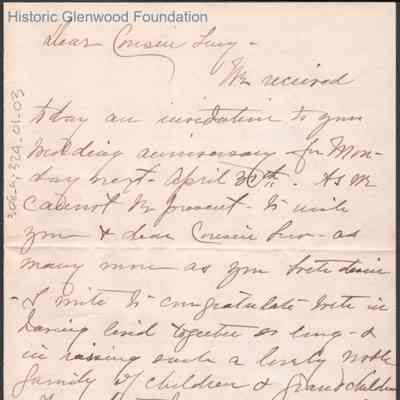 Historic Glenwood Foundation
Dear Cousin Lucy -
We recieved
today an invitation to your
wedding anniversary - for Mon-
day next - April 30th. As we
cannot be present - to write
you & dear Cousin - as
many more as you both desire
- I write to congratulate both in
having lived together so long - &
in raising such a lovely noble
family of children & grandchildren